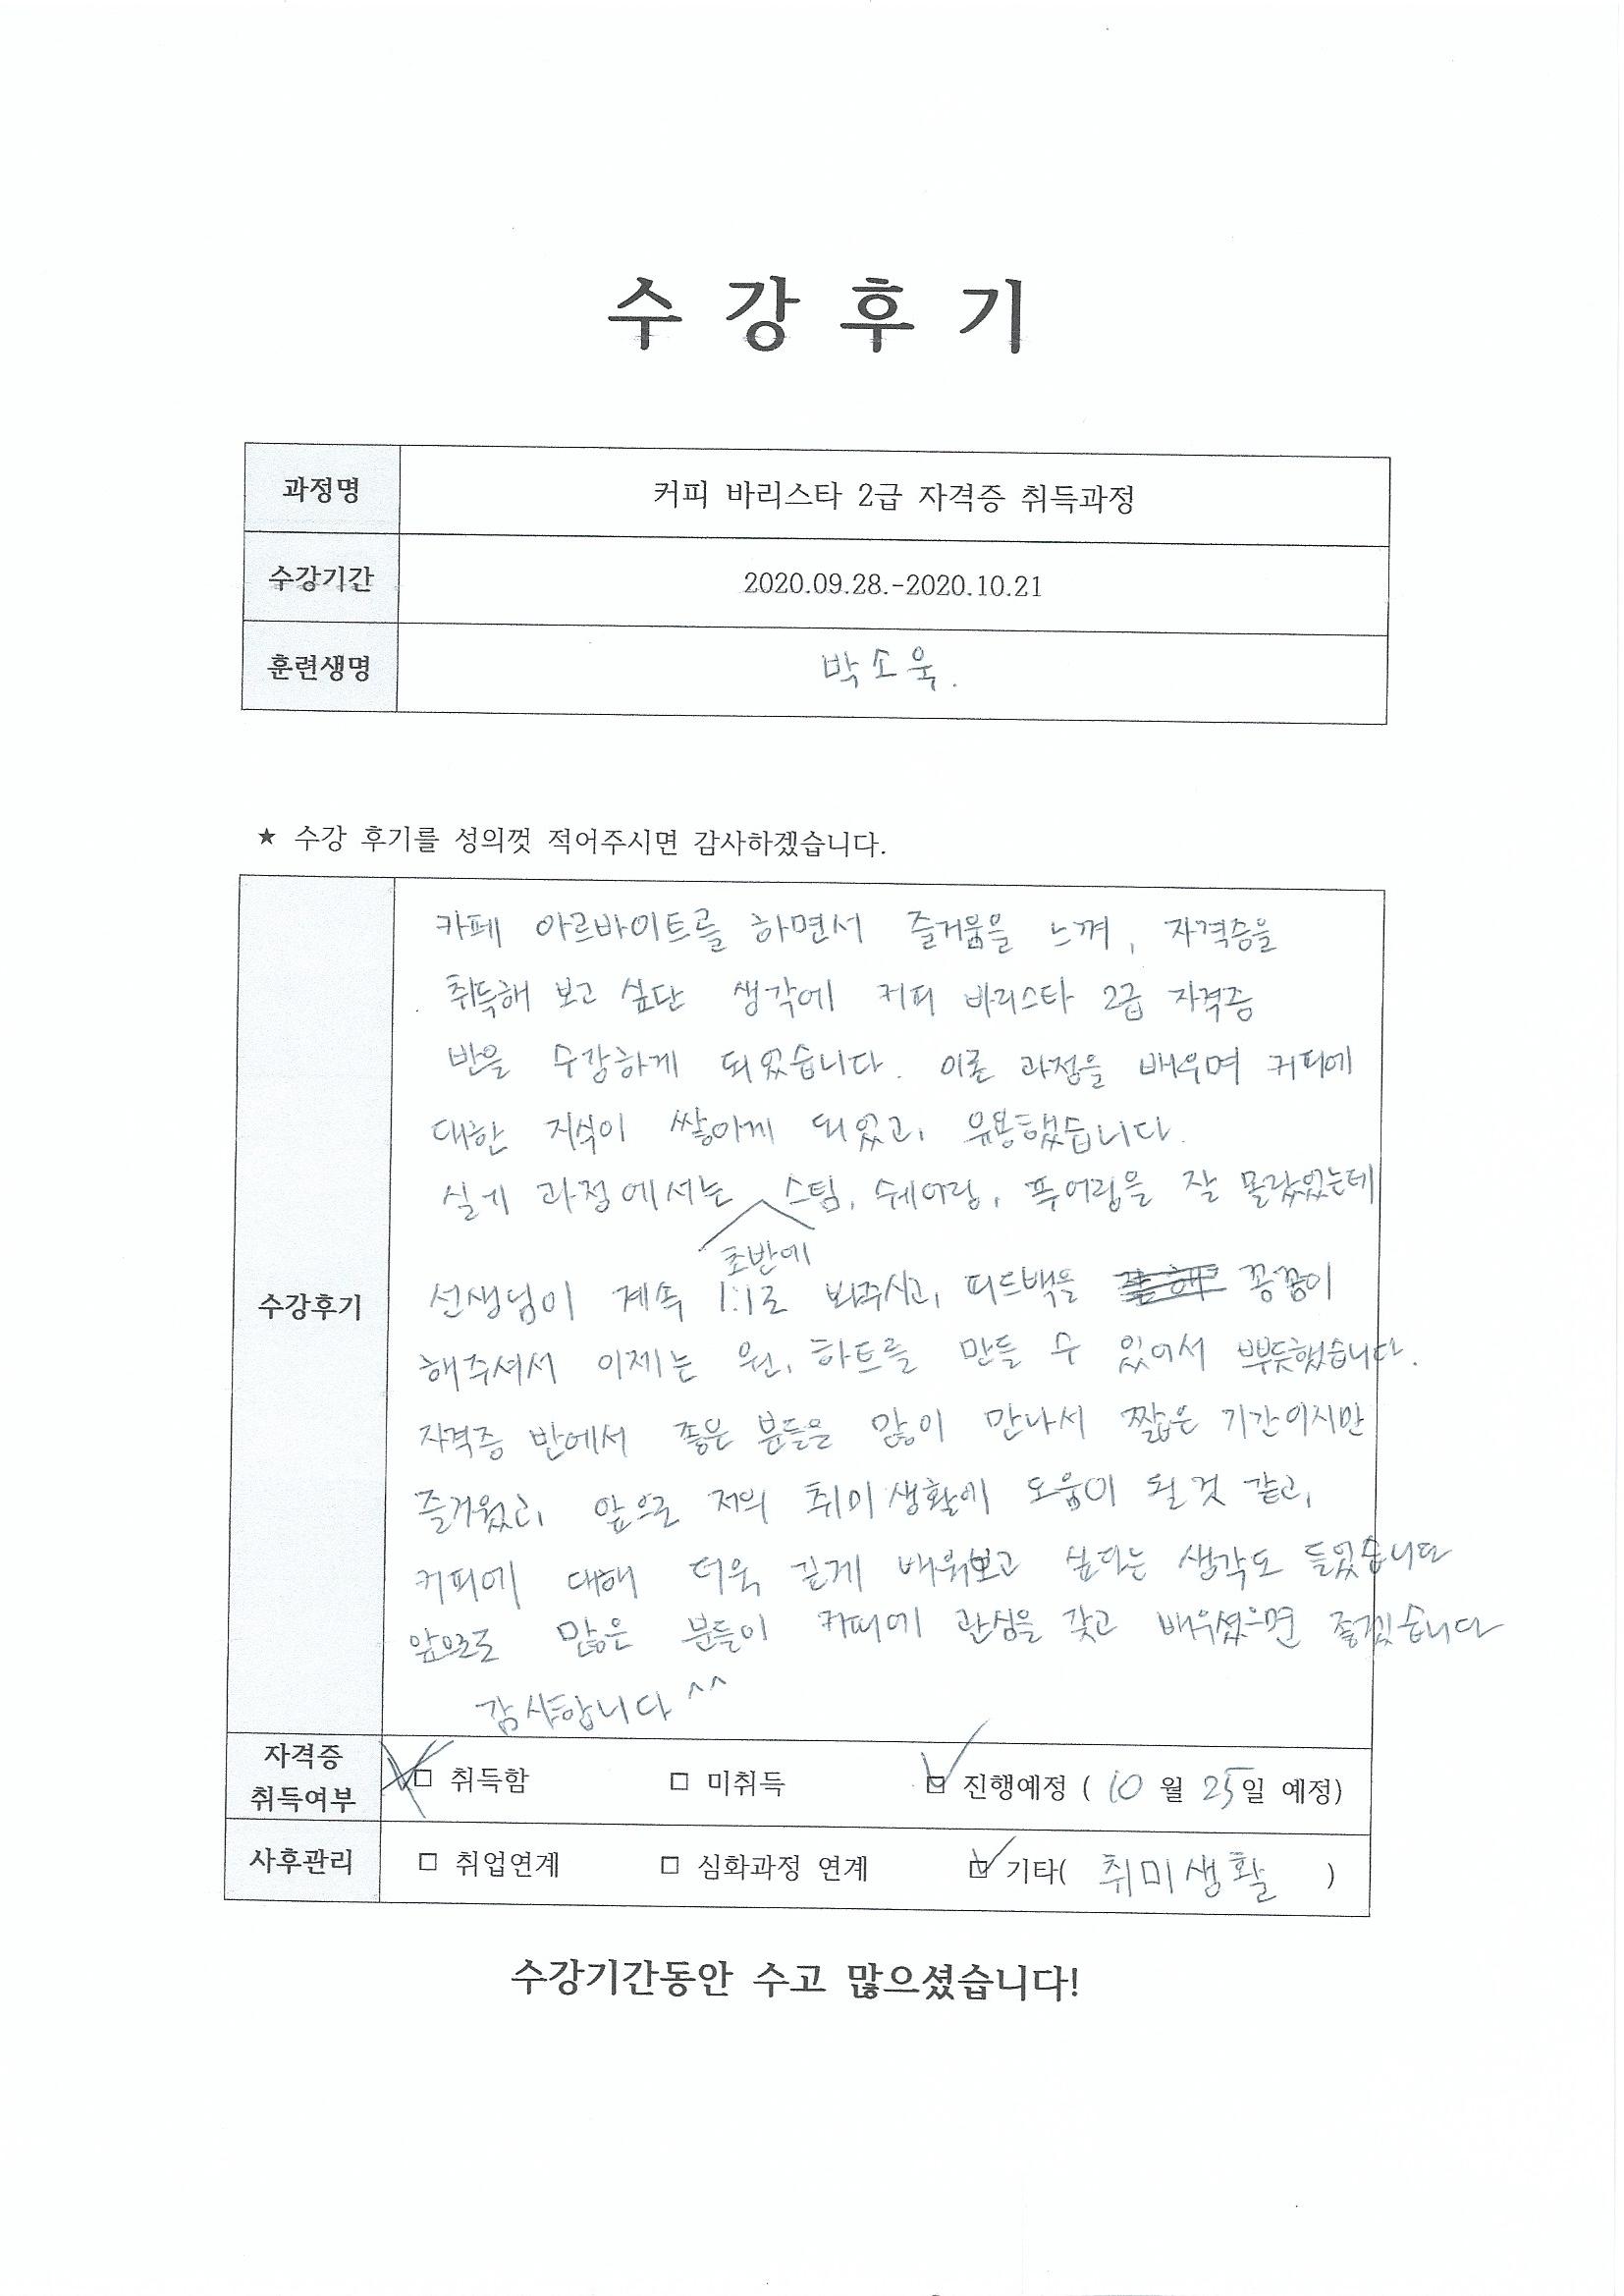 수 강 후 기
과정명 커피 바리스타 2급 자격증 취득과정
수강기간 2020.09.28.-2020.10.21
훈련생명 박소욱.
★ 수강 후기를 성의껏 적어주시면 감사하겠습니다.
수강후기
카페 아르바이트를 하면서 즐거움을 느껴, 자격증을
취득해 보고 싶단 생각에 커피 바리스타 2급 자격증
반을 수강하게 되었습니다. 이론 과정을 배우며 커피에
대한 지식이 쌓아게 되었고, 유용했습니다.
실기 과정에서는 스팀, 쉐어링, 푸어링을 잘 몰랐었는데
초반에
선생님이 계속 1:1로 봐주시고, 피드백을 꼼꼼이
해주셔서 이제는 원, 하트를 만들 수 있어서 뿌듯했습니다.
자격증 반에서 좋은 분들을 많이 만나서 짧은 기간이지만
즐거웠고, 앞으로 저의 취미생활에 도움이 될 것 같고,
커피에 대해 더욱 깊게 배워보고 싶다는 생각도 들었습니다
앞으로도 많은 분들이 커피에 관심을 갖고 배우셨으면 좋겠습니다
감사합니다 ^^
자격증
취득여부 □ 취득함 □ 미취득 □ 진행예정 ( 10 월 25일 예정)
사후관리 □ 취업연계 □ 심화과정 연계 □ 기타( 취미생활 )
수강기간동안 수고 많으셨습니다!